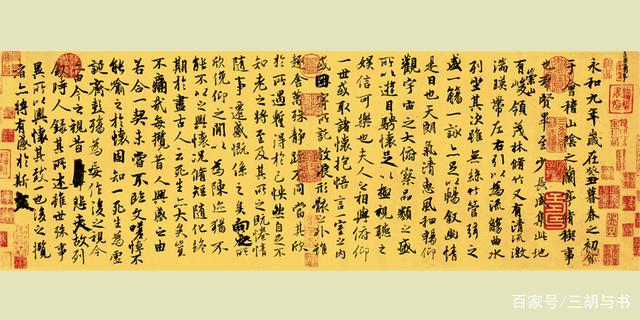 永和九年歲在癸丑暮春之初會
于會稽山陰之蘭亭脩稧事
也群賢畢至少長咸集此地
有崇山峻領茂林脩竹又有清流激
湍暎帶左右引以為流觴曲水
列坐其次雖無絲竹管弦之
盛一觴一詠亦足以暢敘幽情
是日也天朗氣清惠風和暢仰
觀宇宙之大俯察品類之盛
所以遊目騁懷足以極視聽之
娛信可樂也夫人之相與俯仰
一世或取諸懷抱悟言一室之內
或因寄所託放浪形骸之外雖
趣舍萬殊靜躁不同當其欣
於所遇暫得於己怏然自足不
知老之將至及其所之既惓情
隨事遷感慨係之矣向之所
欣俛仰之閒以為陳迹猶不
能不以之興懷況脩短隨化終
期於盡古人云死生亦大矣豈
不痛哉每攬昔人興感之由
若合一契未嘗不臨文嗟悼不
能喻之於懷固知一死生為虛
誕齊彭殤為妄作後之視今
亦由今之視昔悲夫故列
敘時人錄其所述雖世殊事
異所以興懷其致一也後之攬
者亦將有感於斯文
百家号/三胡与书